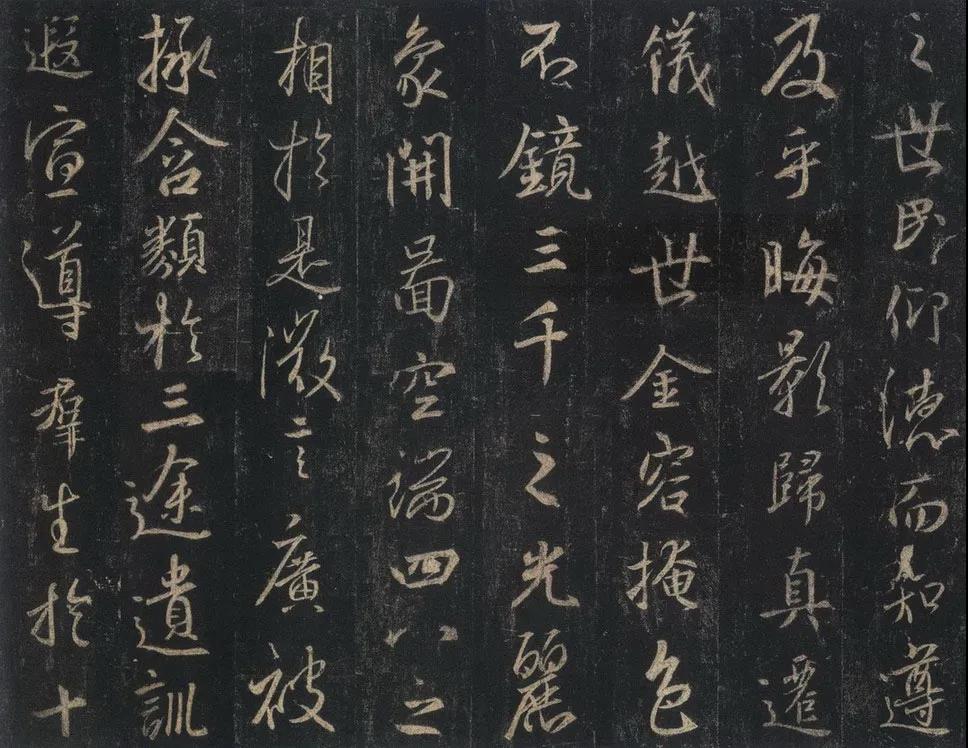 之世民仰德而知遵
及乎晦影歸真遷
儀越世金容掩色
不鏡三千之光麗
象開圖空端四八之
相於是微言廣被
拯含類於三途遺訓
遐宣導群生於十